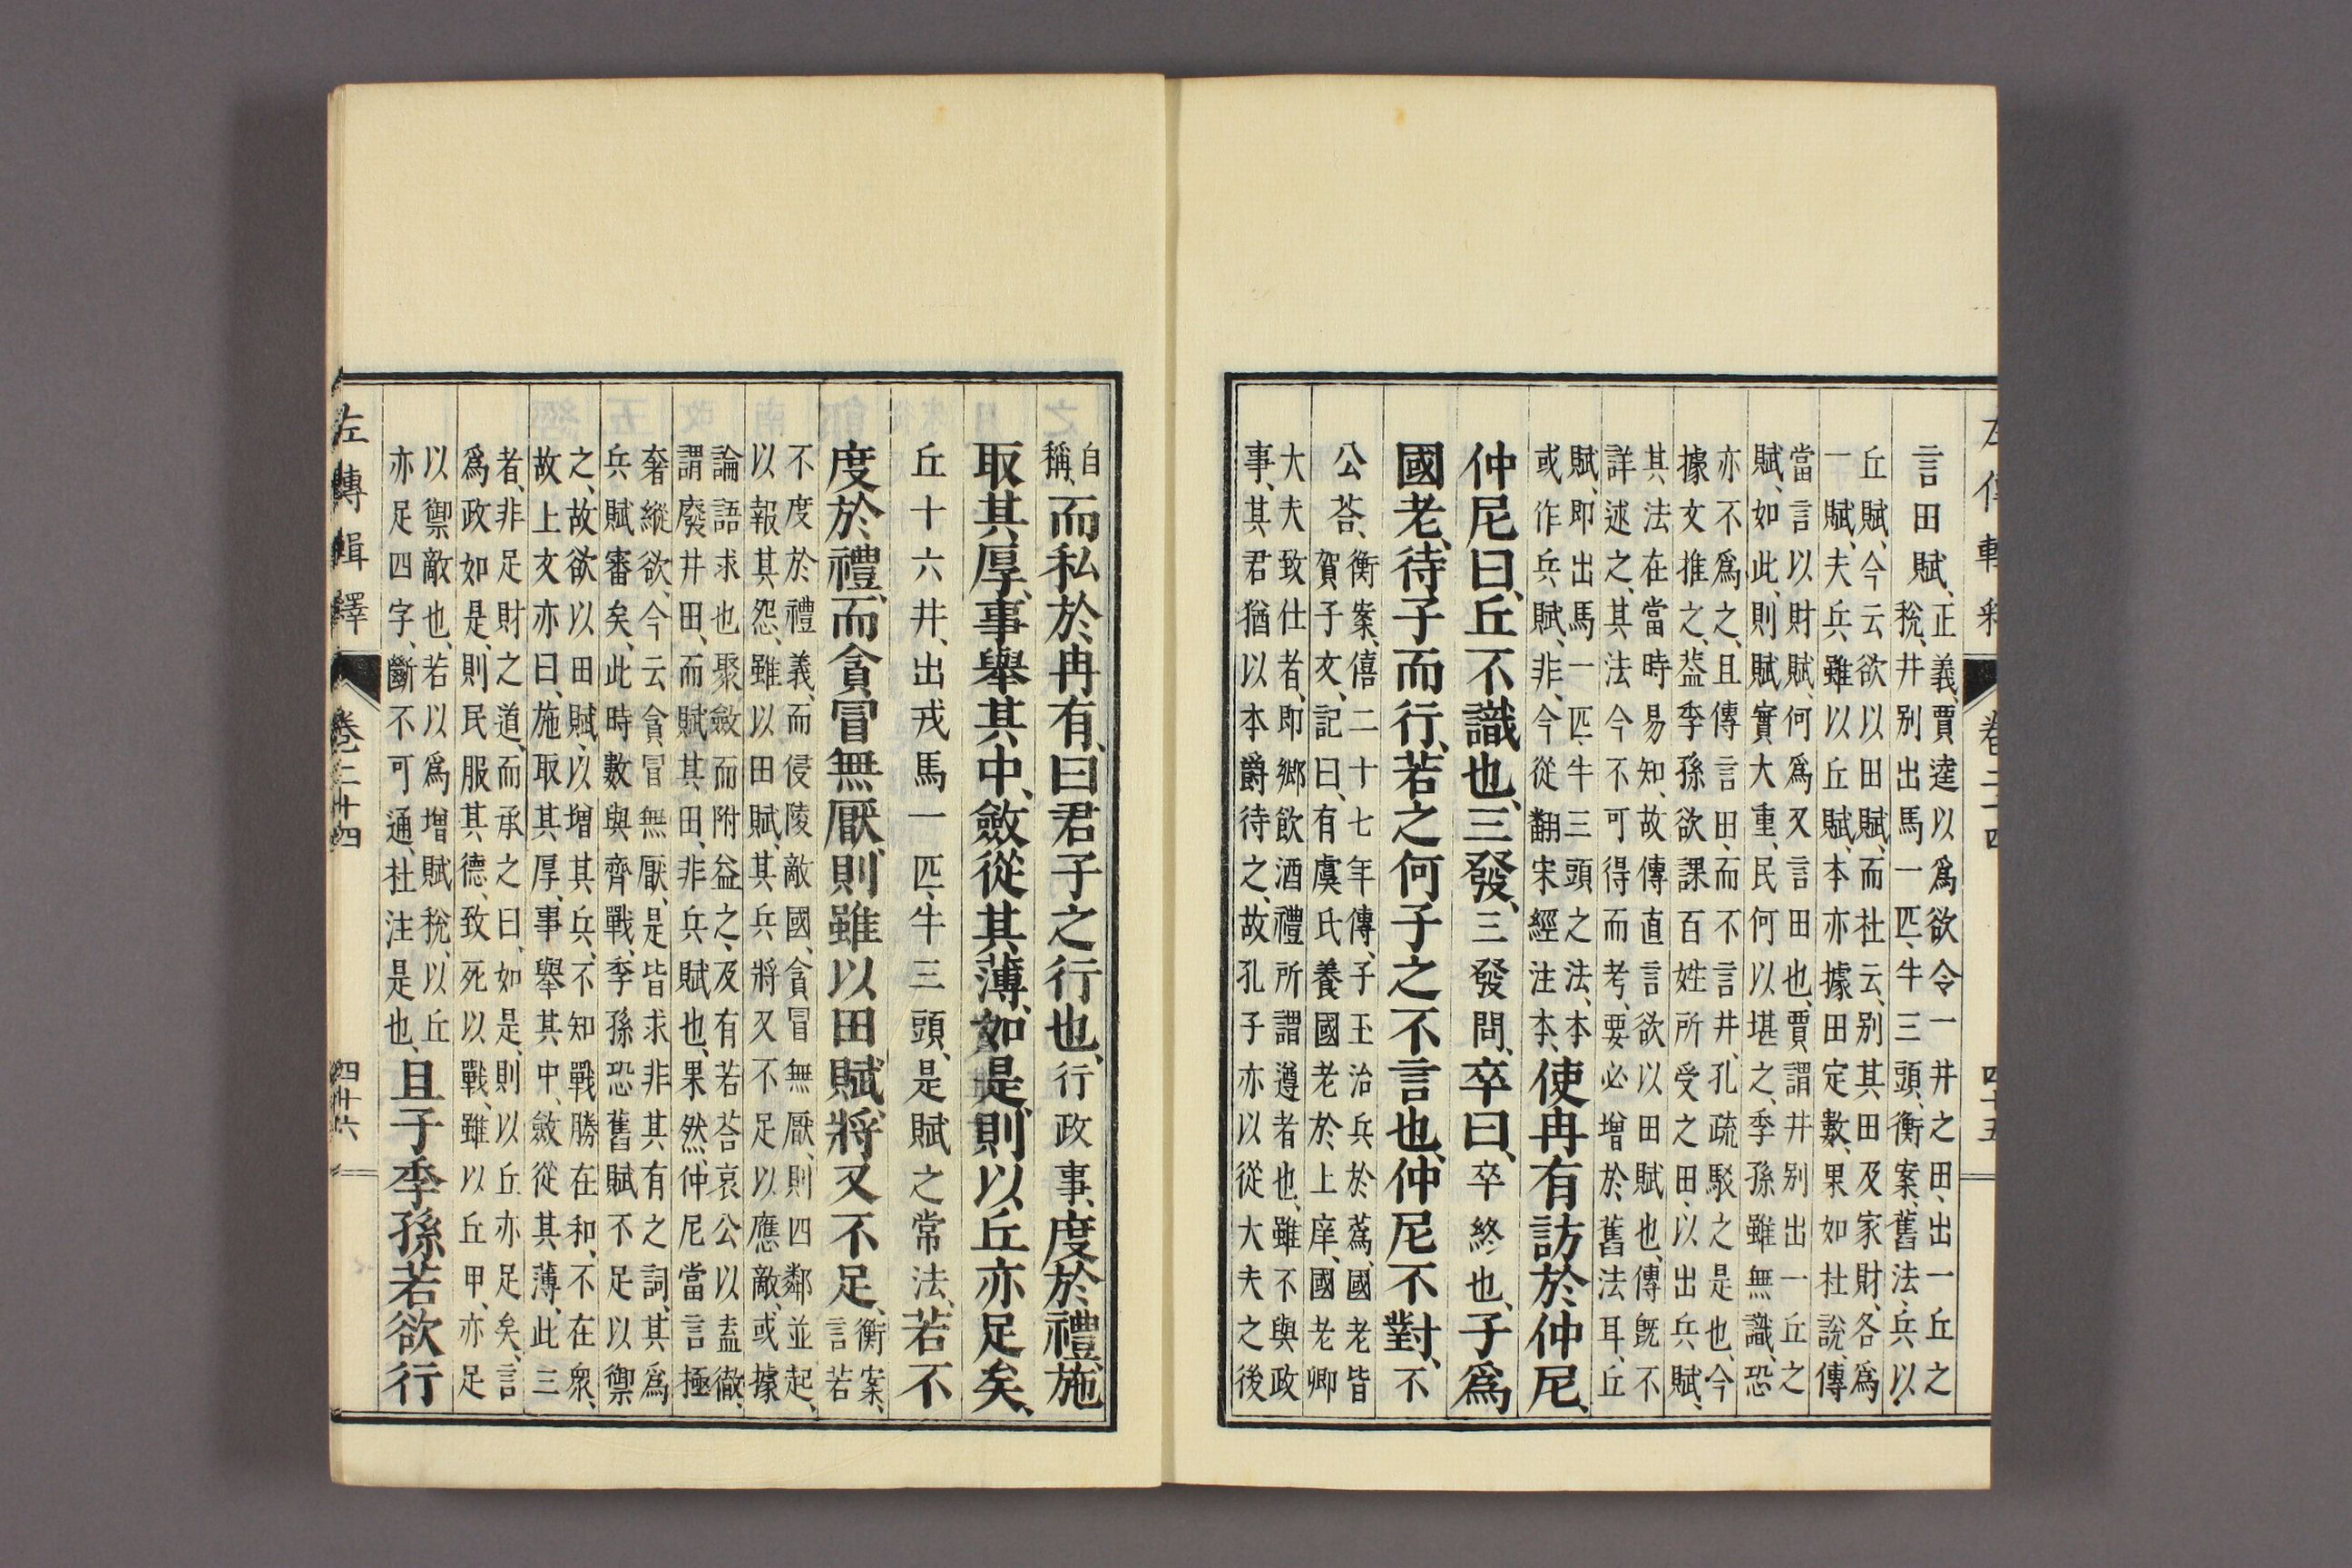 左傳輯釋 卷二十四 四十五
言田賦、
正義、賈逵以爲欲令一井之田、出一丘之
稅、井別出馬一匹、牛三頭、衡案、舊法、兵以
丘賦、今云欲以田賦、而杜云、別其田及家財、各爲
一賦、夫兵雖以丘賦、本亦據田定數、果如杜說、傳
當言以財賦、何爲又言田也、賈謂井別出一丘之
賦、如此、則賦實大重、民何以堪之、季孫雖無識、恐
亦不爲之、且傳言田、而不言井、孔疏駁之是也、今
據文推之、葢季孫欲課百姓所受之田、以出兵賦、
其法在當時易知、故傳直言欲以田賦也、傳既不
詳述之、其法今不可得而考、要必增於舊法耳、丘
賦、即出馬一匹、牛三頭之法、本
或作兵賦、非、今從翻宋經注本、
使冉有訪於仲尼、
仲尼曰、丘不識也、三發、三發問、卒曰、卒終也、子爲
國老、待子而行、若之何子之不言也、仲尼不對、不
公荅、
衡案、僖二十七年傳、子玉治兵於蒍、國老皆
賀子文、記曰、有虞氏養國老於上庠、國老卿
大夫致仕者、即鄉飲酒禮所謂遵者也、雖不與政
事、其君猶以本爵待之、故孔子亦以從大夫之後
自
稱、
而私於冉有、曰君子之行也、行政事、度於禮、施
取其厚、事舉其中、斂從其薄、如是、則以丘亦足矣、
丘十六井、出戎馬一匹、牛三頭、是賦之常法、若不
度於禮、而貪冒無厭、則雖以田賦、將又不足、
衡案、
言若
不度於禮義、而侵陵敵國、貪冒無厭、則四鄰並起、
以報其怨、雖以田賦、其兵將又不足以應敵、或據
論語求也聚斂而附益之、及有若荅哀公以盍徹、
謂廢井田、而賦其田、非兵賦也、果然、仲尼當言極
奢縱欲、今云貪冒無厭、是皆求非其有之詞、其爲
兵賦審矣、此時數與齊戰、季孫恐舊賦不足以禦
之、故欲以田賦、以增其兵、不知戰勝在和、不在衆、
故上文亦曰、施取其厚、事舉其中、斂從其薄、此三
者、非足財之道、而承之曰、如是、則以丘亦足矣、言
爲政如是、則民服其德、致死以戰、雖以丘甲、亦足
以禦敵也、若以爲增賦稅、以丘
亦足四字、斷不可通、杜注是也、
且子季孫若欲行
左傳輯釋 卷二十四 四十六